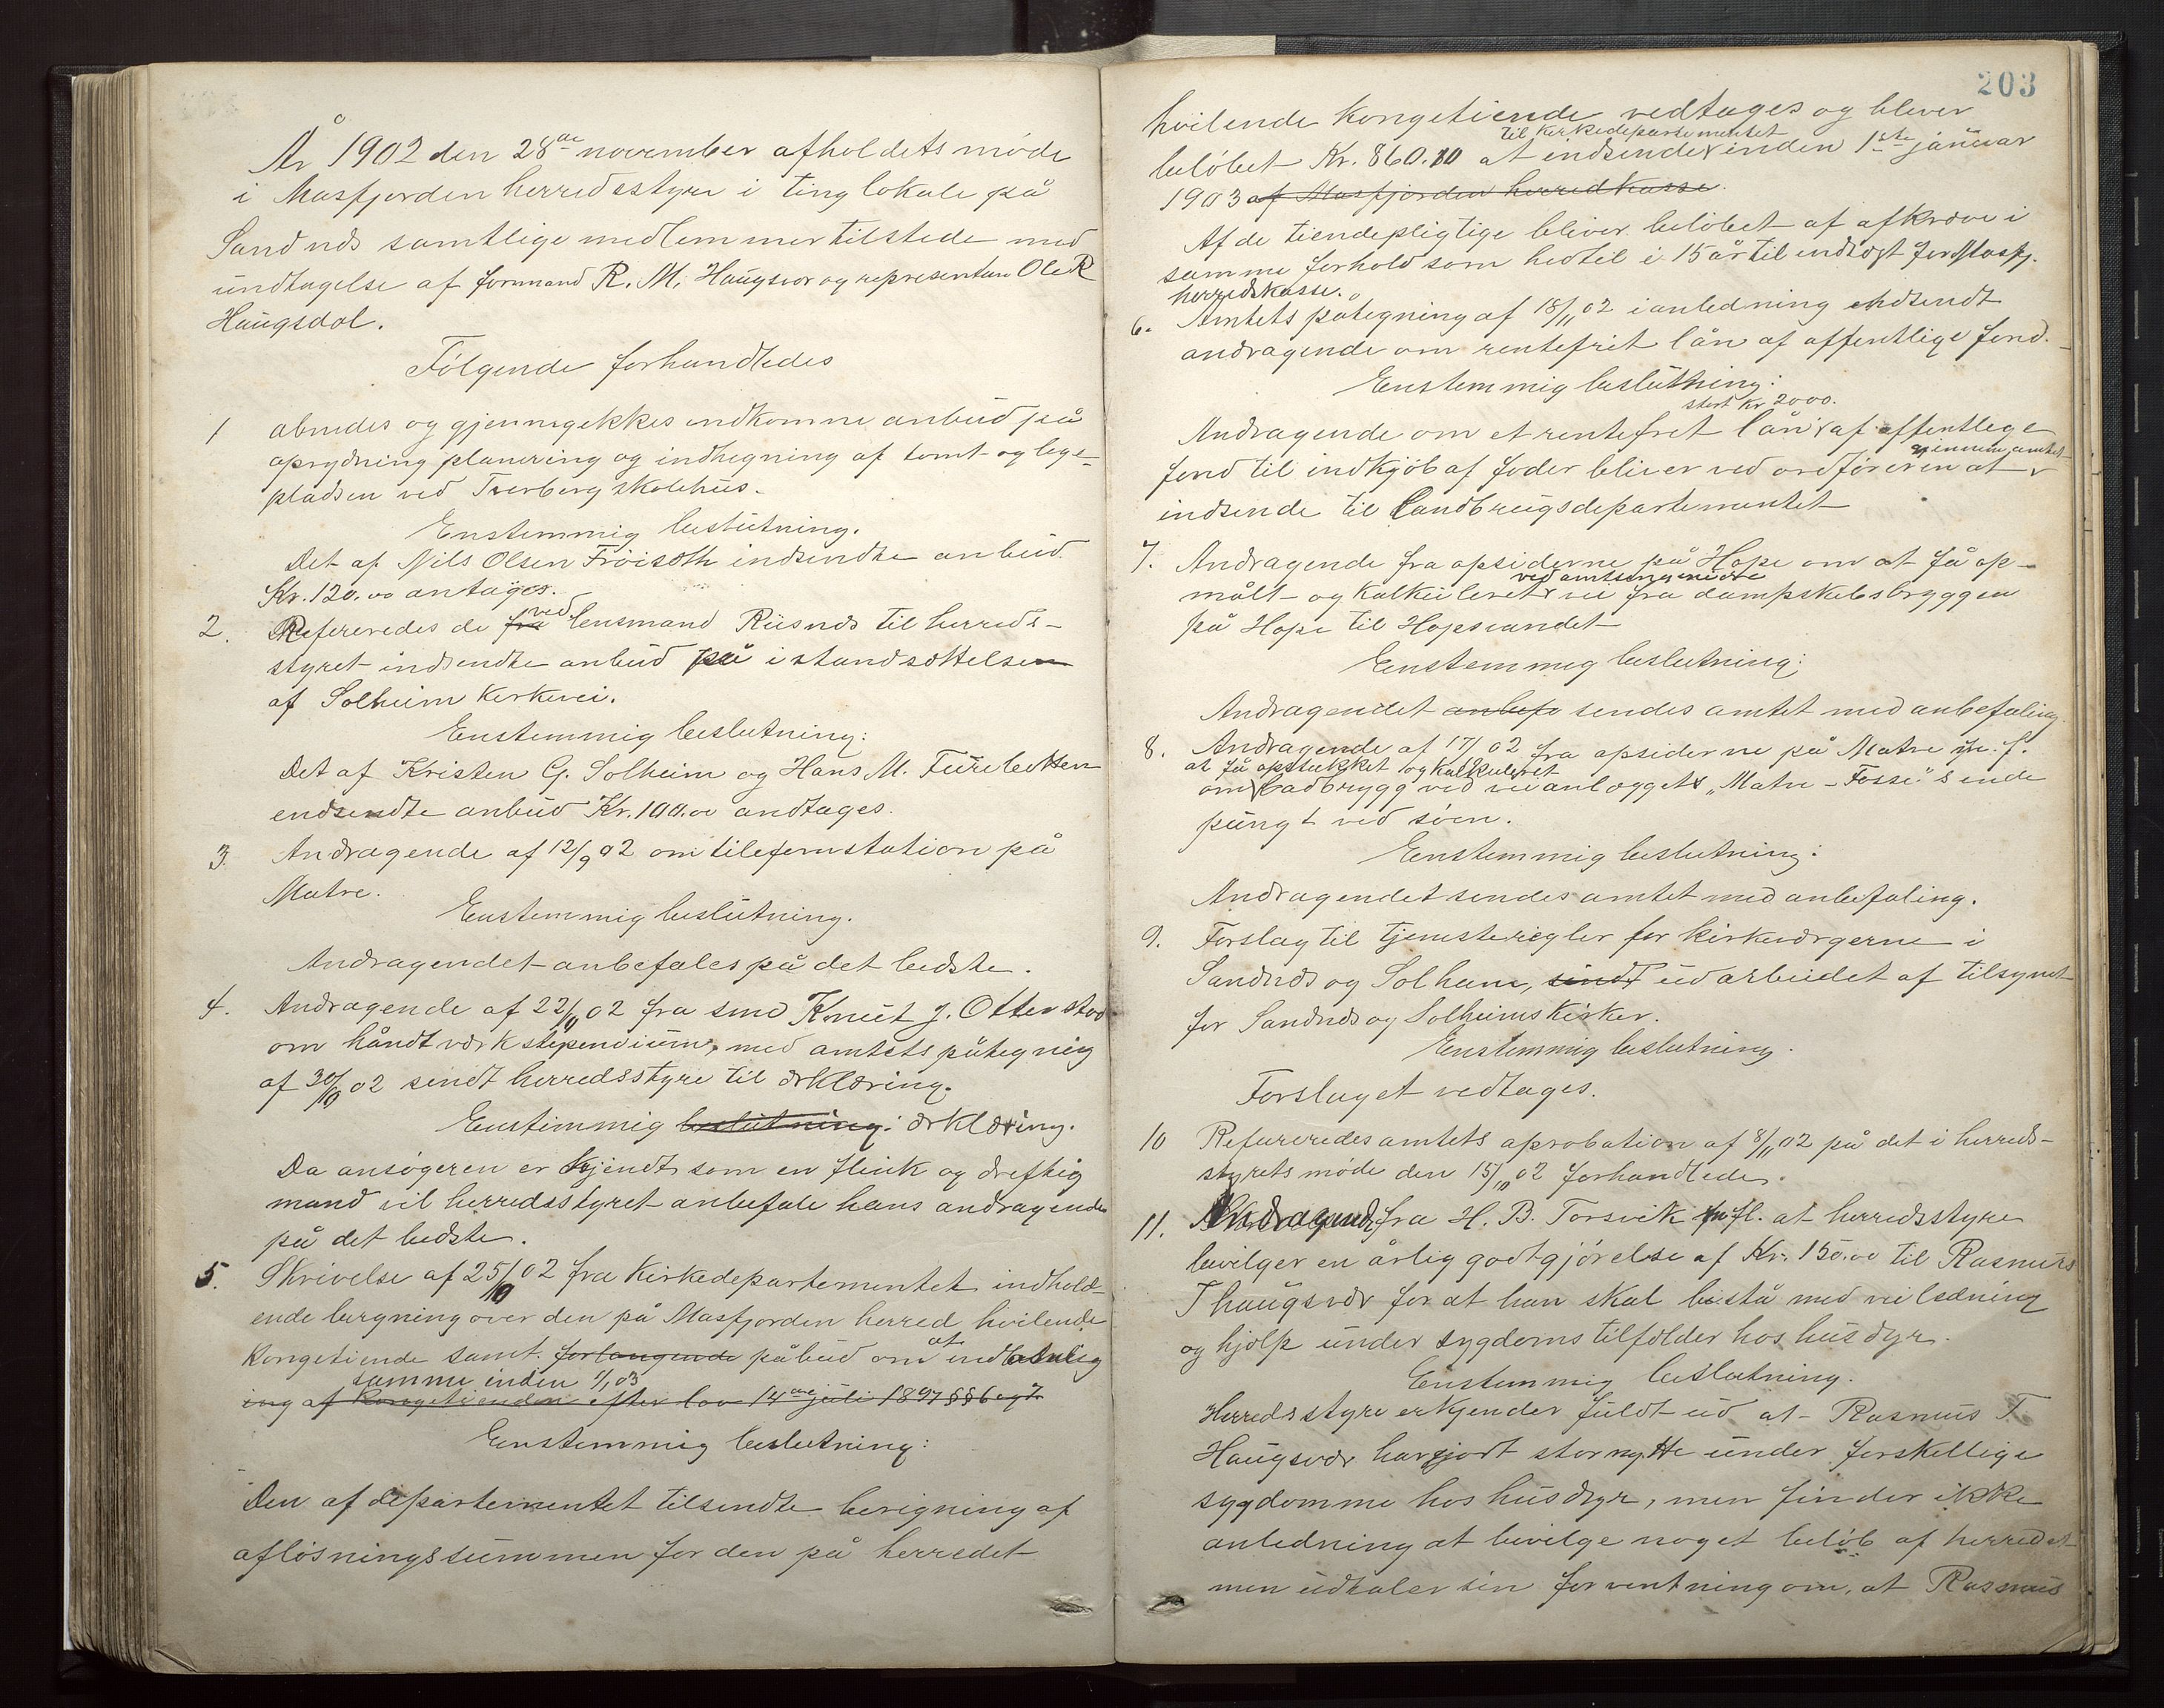 År 1902 den 28de november afholdets møde
i Masfjorden herredsstyre i tinglokale på
Sandnæs samtlige medlemmer tilstede med
undtagelse af formand R. M. Haugsvær og representan Ole R
Haugsdal.
Følgende forhandledes
1 abnedes og gjennegikkes indkomne anbud på
oprydning planering og indhegning af tomt- og lege-
pladsen ved Tverberg skolehus.
Enstemmig beslutning.
Det af Nils Olsen Frøiseth indsendte anbud
Kr. 120.00 antages.
2. Refereredes de fra ved lensmand Risnæs til herreds-
styret indsendte anbud på istandsættelsen
af Solheim Kirkevei.
Enstemmig beslutning:
Det af Kristen G. Solheim og Hans M. Furebotten
endsendte anbud Kr. 100.00 andtages.
3. Andragende af 12/9 02 om tilefonstation på
Matre.
Enstemmig beslutning.
Andragendet anbefales på det bedste.
4. Andragende af 22/10 02 fra smed Knut J. Otterstad
om håndtverkstipendium, med amtets påtegnig
af 30/10 02 sendt herredsstyre til ærklæring.
Enstimmig beslutning: ærklæring.
Da ansøgeren er kjendt som en flink og dreftig
mand vil herredsstyret anbefale hans andragende
på det bedste.
5. Skrivelse af 25/10 02 fra Kirkedepartementet indhold-
ende bergning over den på Masfjorden herred hvilende
Kongetiende samt forlangende påbud om at indbetalig
samme inden 1/1 03
ing af Kongetienden efter lov 14de juli 1897 §§ 6 og 7
Enstemmig beslutning:
Den af departementet tilsendte berigning af
afløsningssummen for den på herredet
203
hvilende Kongetiende vedtages og bliver
til Kirkedepartementet
beløbet Kr. 860.10 at indsende inden 1ste januar
1903 af Masfjorden herredkasse.
Af de tiendepligtige bliver beløbet af afkræve i
samme forhold som hertil i 15 år til indtægt for Masfj.
herredskasse.
6. Amtets påtegning af 18/11 02 i anledning indsendt
andragende om rentefrit lån af offentlige fond.
Enstemmig beslutning:
stort kr 2000.
Andragende om et rentefret lån af offentlege
gjennem amtet
fond til indkjøb af foder bliver ved ordføreren at
indsende til Landbrugsdepartementet
7. Andragende fra opsiderne på Hope om at få op-
ved amtsingeniøre
målt og kalkuleret vei fra dampskibsbryggen
på Hope til Hopsvandet
Enstemmig beslutning:
Andragendet anbefa sendes amtet med anbefaling
8. Andragende af 17/ 02 fra opsiderne på Matre m. f.
at få opstukket og kalkuleret
om badbrygg ved veianlæggets "Matre - Fosse"s ende
pungt ved søen.
Enstemmig beslutning:
Andragendet sendes amtet med anbefaling.
9. Forslag til tjensteriegler for kirkeværgerne i
Sandnæs og Solheim, sendt udarbeidet af tilsynet
for Sandnæs og Solheims Kirker.
Enstemmig beslutning.
Forslaget vedtages.
10 Refereredes amtets aprobation af 8/11 02 på det i herreds-
styrets møde den 15/10 02 forhandlede.
11. Andragende fra H. B. Torsvik m fl. at herredsstyre
bevilger en årlig godtgjørelse af Kr. 150.00 til Rasmus
T haugsvær for at han skal bistå med veiledning
og hjælp under sygdoms tilfælder hos husdyr.
Enstemmig beslutning.
Herredsstyre erkjender fuldt ud at Rasmus T.
Haugsvær har gjort stor nytte under forskellige
sygdomme hos husdyr, men finder ikke
anledning at bevilge noget beløb af herredet
men udtaler sin forventning om, at Rasmus